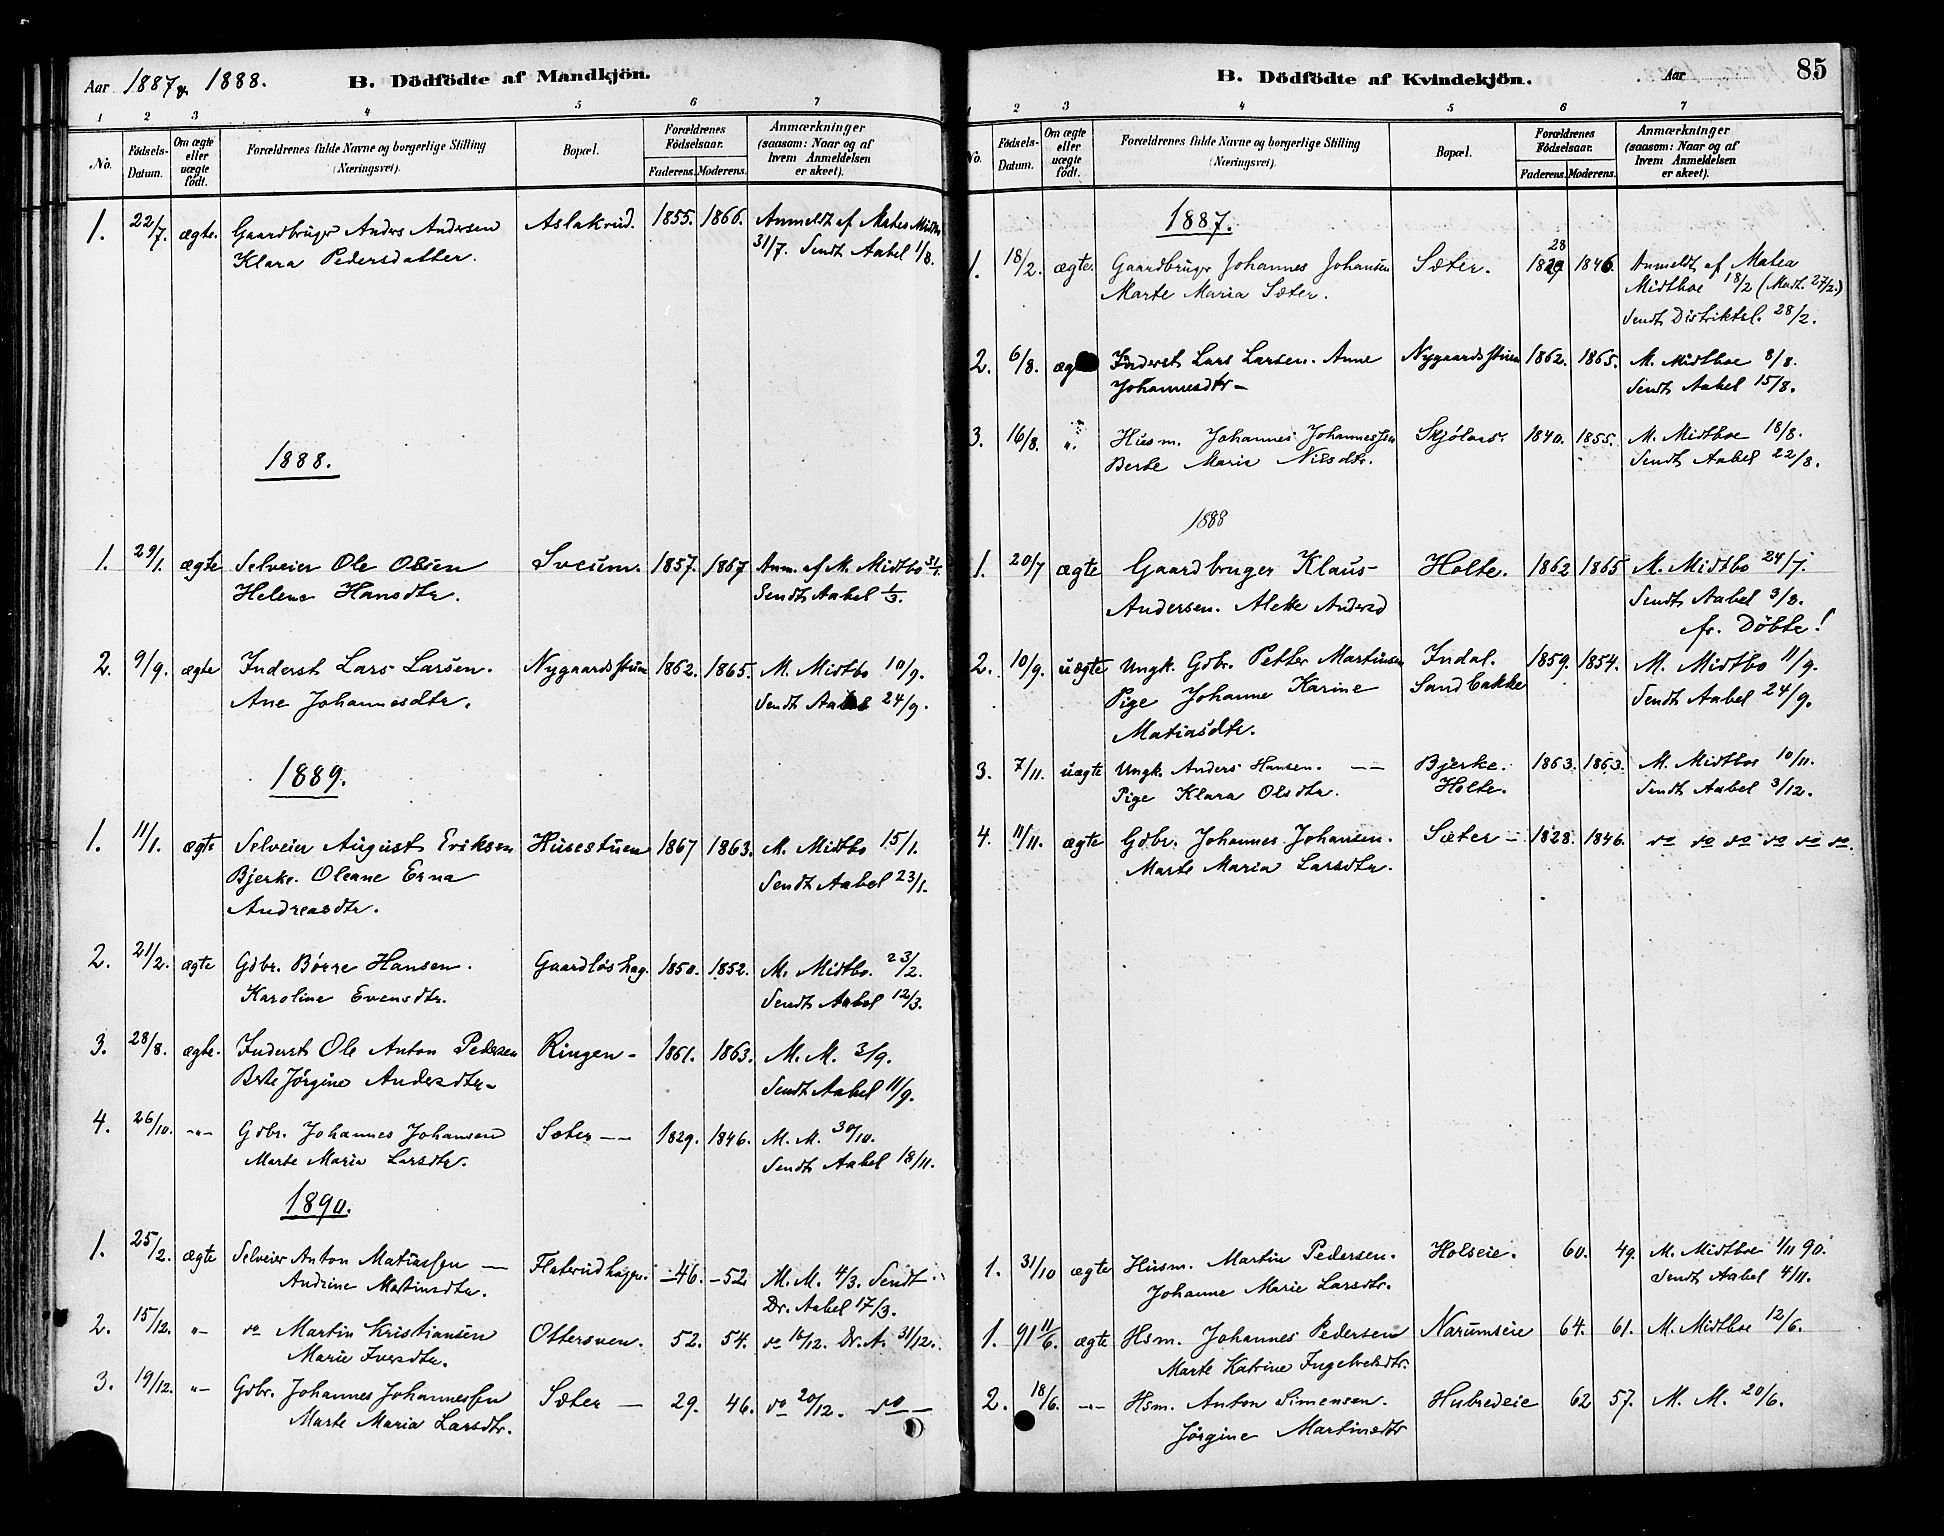 Aar 1887 & 1888. B. Dödfödte af Mandkjön.
1 2 3 4 5 6 7
No. Födsels-Datum. Om ægte eller uægte födt. Forældrenes fulde Navne og borgerlige Stilling (Næringsvei). Bopæl. Forældrenes Födselsaar. Faderens. Moderens. Anmærkninger (saasom: Naar og af hvem Anmeldelsen er skeet).
1. 22/7. ægte. Gaardbruger Anders Andersen Aslakrud. 1855. 1866. Anmeldt af Matea Midtbo
Klara Pedersdatter. 31/7. Sendt Aabel 1/8.
1888.
1. 29/1. ægte Selveier Ole Olsen Sveum. 1857. 1867 Anm. af M. Midtbo 31/1.
Helene Hansdtr. Sendt Aabel 1/3.
2. 9/9. ægte Inderst Lars Larsen. Nygaardsstuen 1862. 1865. M. Midtbo 10/9.
Ane Johannesdtr. Sendt Aabel 24/9.
1889.
1. 11/1. ægte Selveier August Eriksen Husestuen 1867 1863. M. Midtbo 15/1.
Bjerke. Oleane Erna Sendt Aabel 23/1.
Andreasdtr.
2. 21/2. ægte Gdbr. Börre Hansen. Gaardløshag. 1850. 1852. M. Midtbo. 23/2.
Karoline Evensdtr. Sendt Aabel 12/3.
3. 28/8. ægte. Inderst Ole Anton Pedersen Ringen - 1861. 1863. M. M. 3/9.
Berte Jörgine Andersdtr - Sendt Aabel 11/9.
4. 26/10. -"- Gdbr. Johannes Johansen Sæter -- 1829. 1846. M. M. 30/10.
Marte Maria Larsdtr. Sendt Aabel 18/11.
1890.
1. 25/2. ægte Selveier Anton Matiassen — Flaterudhagen. -46. -52 M. M. 4/3. Sendt
Andrine Martinsdtr. Dr. Aabel 17/3.
2. 15/12. "- do Martin Kristiansen Ottersven. 52. 54. do 16/12. Dr. A. 31/12.
Marie Iversdtr.
3. 19/12. "- Gdbr. Johannes Johannessen Sæter — 29. 46. do 20/12. do —
Marte Maria Larsdtr.
B. Dödfödte af Kvindekjön. Aar 85
1 2 3 4 5 6 7
No. Födsels-Datum. Om ægte eller uægte födt. Forældrenes fulde Navne og borgerlige Stilling (Næringsvei). Bopæl. Forældrenes Födselsaar. Faderens. Moderens. Anmærkninger (saasom: Naar og af hvem Anmeldelsen er skeet).
1887.
28
1. 18/2. ægte. Gaardbruger Johannes Johansen Sæter. 1829 1846. Anmeldt af Matea
Marte Maria Sæter. Midtboe 18/2 (Modt. 27/2.)
Sendt Distriktsl. 28/2.
2. 6/8. æg Inderst Lars Larsen. Anne Nygaardsstuen 1862. 1865. M. Midtboe 8/8.
Johannesdtr - Sendt Aabel 15/8.
3. 16/8. ". Husm. Johannes Johannessen Skjölaas. 1840. 1855. M. Midtboe 18/8.
Berte Marie Nilsdtr. Sendt Aabel 22/8.
1888
1. 20/7 ægte Gaardbruger Klaus Holte. 1862 1865 M. Midtbo 24/7.
Andersen. Alette Andersd Sendt Aabel 3/8.
fr. Döbte!
2. 10/9. uægte Ungk. Gdbr. Petter Martinsen Indal. 1859. 1854. M. Midtbo 11/9.
Pige Johanne Karine Sandbakke Sendt Aabel 24/9.
Matiasdtr.
3. 7/11. uægte Ungk. Anders Hansen. -- Bjerke. 1863. 1863. M. Midtboe 10/11.
Pige Klara Olsdtr. Holte. Sendt Aabel 3/12.
4. 11/11. ægte Gdbr. Johannes Johansen. Sæter - 1828. 1846. do do do do do do.
Marte Maria Larsdtr.
1. 31/10 ægte Husm. Martin Pedersen. Holseie. 60. 49. M. Midtboe 1/11 90.
Johanne Marie Larsdtr. Sendt Aabel 4/11.
1. 91 11/6. ægte Hsm. Johannes Pedersen Narumseie 64. 61. M. Midtboe 12/6.
Marte Katrine Ingebretsdtr.
2. 18/6. -"- Hsm. Anton Simensen. Hubredeie 62 57. M. M. 20/6.
Jörgine Martinsdtr